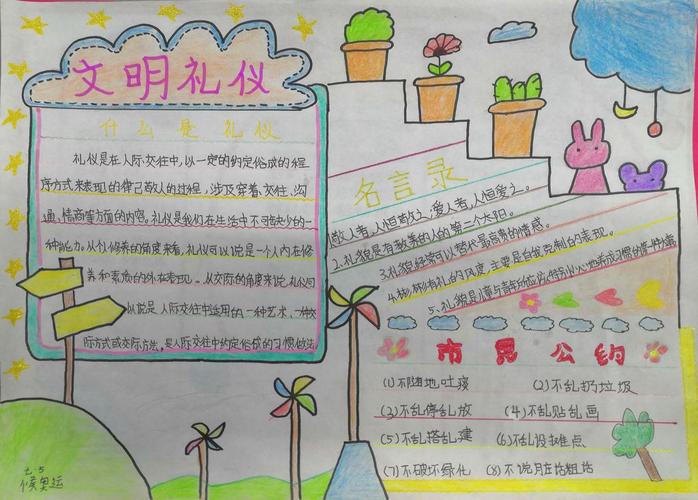 文明礼仪
什么是礼仪
礼仪是在人际交往中,以一定的约定俗成的程
序方式来表现的律己敬人的过程,涉及穿着、交往、沟
通、情商等方面的内容。礼仪是我们在生活中不可缺少的一
种能力。从个人修养的角度来看,礼仪可以说是一个人内在修
养和素质的外在表现。从交际的角度来说,礼仪可
以说是人际交往中适用的一种艺术、一种交
际方式或交际方法,是人际交往中约定俗成的习惯做法
名言录
1.敬人者,人恒敬之;爱人者,人恒爱之。
2.礼貌是有教养的人的第二个太阳。
3.礼貌经常可以替代最高贵的情感。
4.彬彬有礼的风度,主要是自我克制的表现。
5.礼貌是儿童与青年所应该特别小心地养成习惯的第一件大事
市民公约
(1)不随地吐痰 (2)不乱扔垃圾
(3)不乱停乱放 (4)不乱贴乱画
(5)不乱搭乱建 (6)不乱设摊点
(7)不破坏绿化 (8)不说脏话粗话
七.5
奥运